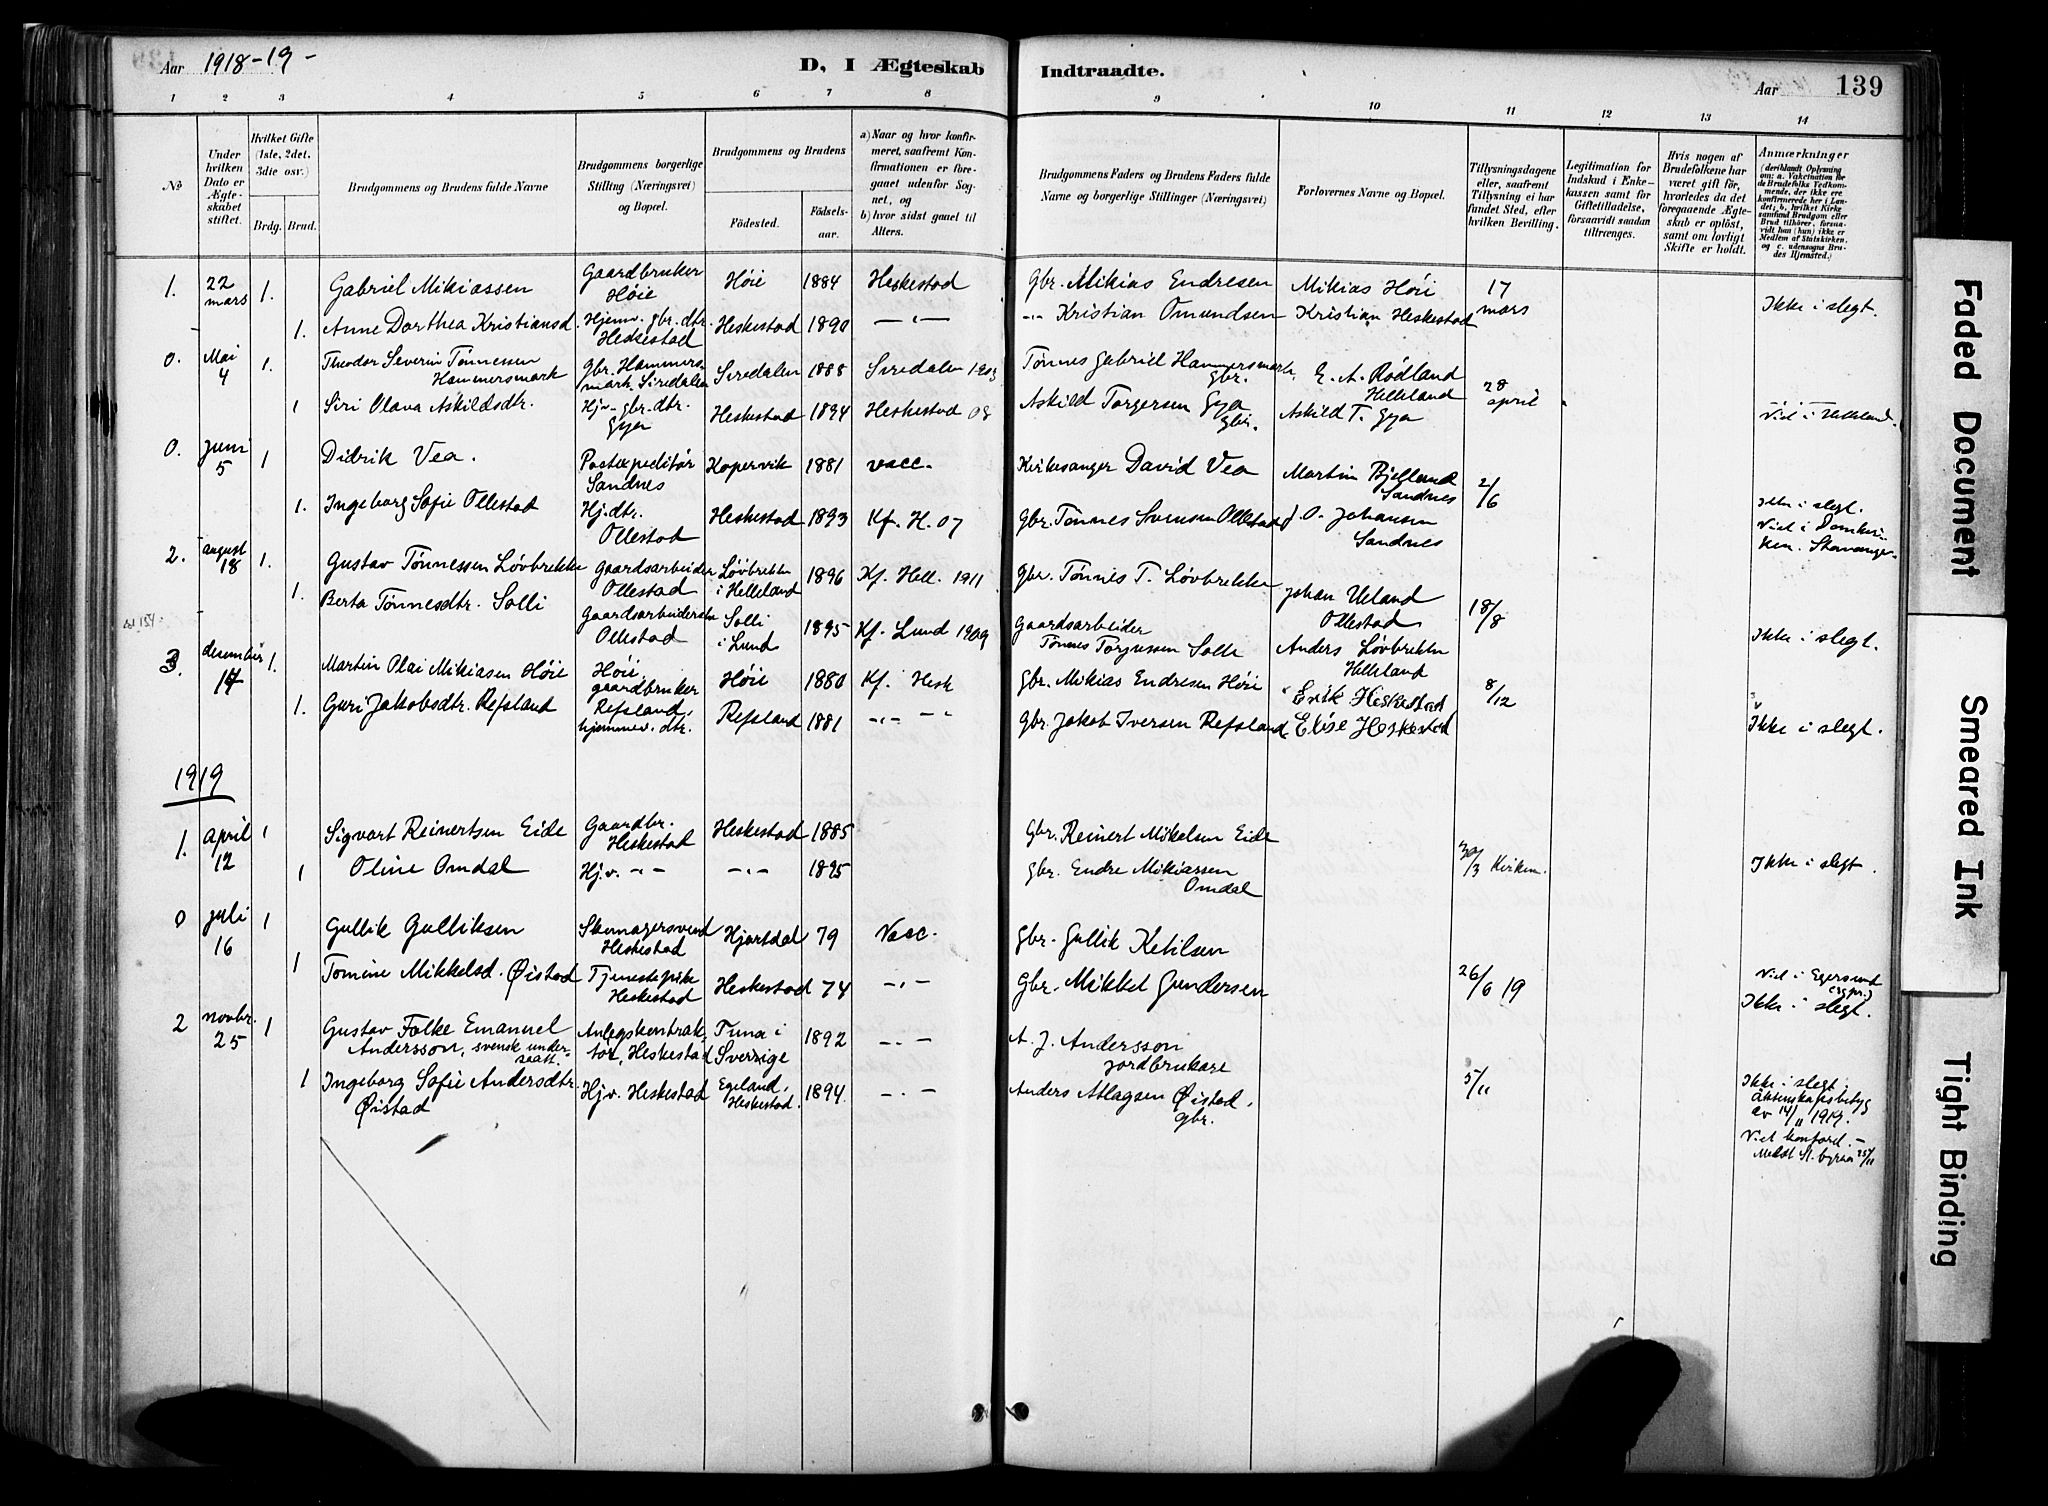 Aar 1918-19-
D. I Ægteskab Indtraadte.
Aar 139
1 2 3 4 5 6 7 8 9 10 11 12 13 14
No
Under hvilken Dato er Ægteskabet stiftet.
Hvilket Gifte (1ste, 2det, 3die osv.)
Brdg. Brud.
Brudgommens og Brudens fulde Navne
Brudgommens borgerlige Stilling (Næringsvei) og Bopæl.
Brudgommens og Brudens
Födested.
Födsels-aar.
a) Naar og hvor konfirmeret, saafremt Konfirmationen er foregaaet udenfor Sognet, og
b) hvor sidst gaaet til Alters.
Brudgommens Faders og Brudens Faders fulde Navne og borgerlige Stillinger (Næringsvei)
Forlovernes Navne og Bopæl.
Tillysningsdagene eller, saafremt Tillysning ei har fundet Sted, efter hvilken Bevilling.
Legitimation for Indskud i Enkekassen samt for Giftetilladelse, forsaavidt saadan tiltrænges.
Hvis nogen af Brudefolkene har været gift før, hvorledes da det foregaaende Ægteskab er opløst, samt om lovligt Skifte er holdt.
Anmærkninger (deriblandt Oplysning om: a. Vakcination for de Brudefolks Vedkommende, der ikke ere konfirmerede her i Landet; b. hvilket Kirkesamfund Brudgom eller Brud tilhører, forsaavidt han (hun) ikke er Medlem af Statskirken, og c. udensogns Brudes Hjemsted.)
1. 22 mars 1. Gabriel Mikiassen Gaardbruker Høie Høie 1884 Heskestad Gbr. Mikias Endresen Mikias Høie 17 mars Ikke i slegt.
1. Anne Dorthea Kristiansd. Hjemv. gbr. dtr. Heskestad Heskestad 1890 -"- -"- Kristian Omundsen Kristian Heskestad
0. Mai 4 1. Theodor Severin Tønnessen Hammersmark Gbr. Hammersmark. Siredalen Siredalen 1888 Siredalen 1903 Tønnes Gabriel Hammersmark gbr. E. A. Rødland Helleland 28 april
1 Siri Olava Askildsdtr. Hjv. gbr. dtr. Gya Heskestad 1894 Heskestad 08 Askild Torgersen Gya gbr. Askild T. Gya Viet i Helleland.
0. Juni 5 1 Didrik Vea. Postexpeditør Sandnes Kopervik 1881 vacc. Kirkesanger David Vea Martin Bjelland Sandnes 2/6
1. Ingeborg Sofie Ollestad Hj. dtr. Ollestad Heskestad 1893 Kf. H. 07 Gbr. Tønnes Svensen Ollestad J. O. Johansen Sandnes Ikke i slegt. Viet i Domkirken. Stavanger.
2. august 18 1. Gustav Tønnessen Løvbrekke Gaardsarbeider Ollestad Løvbrekke i Helleland 1896 Kf. Hell. 1911 Gbr. Tønnes T. Løvbrekke Johan Ueland Ollestad 18/8
1. Berta Tønnesdtr. Solli Gaardsarbeiderske Ollestad Solli i Lund 1895 Kf. Lund 1909 Gaardsarbeider Tønnes Torgersen Solli Anders Løvbrekke Helleland Ikke i slegt.
3. desember 14 1. Martin Olai Mikiasen Høie Høie, gaardbruker Høie 1880 Kf. Hesk Gbr. Mikias Endresen Høie Erik Heskestad 8/12
1. Guri Jakobsdtr. Refsland Refsland, hjemmev. dtr. Refsland 1881 -"- -"- Gbr. Jakob Iversen Refsland Elise Heskestad Ikke i slegt.
1919
1. April 12 1 Sigvart Reinertsen Eide Gaardbr. Heskestad Heskestad 1885 Gbr. Reinert Mikelsen Eide 30/3 Kirken.
1 Oline Omdal Hj.v. -"- -"- 1895 Gbr. Endre Mikiassen Omdal Ikke i slegt.
0 juli 16 1 Gullik Gulliksen Skomagersvend Heskestad Hjartdal 79 Vacc. Gbr. Gullik Ketilsen
1 Tomine Mikkelsd. Øistad Tjenestepike Heskestad Heskestad 74 -"- Gbr. Mikkel Gundersen 26/6 19 Viet i Egersund Ikke i slegt.
2 novbr. 25 1 Gustav Folke Emanuel Andersson, svensk undersaatt. Anlegskontraktør, Heskestad Tuna i Sverrige 1892 -"- A. J. Andersson jordbrukare
1 Ingeborg Sofie Andersdtr. Øistad Hj.v. Heskestad Egeland, Heskestad. 1894 -"- Anders Atlagsen Øistad, gbr. 5/11 Ikke i slegt. äktenskapsbetyg av 14/11 1919. Viet konford. - Meldt St. byraa 25/11
Faded Document
Smeared Ink
Tight Binding